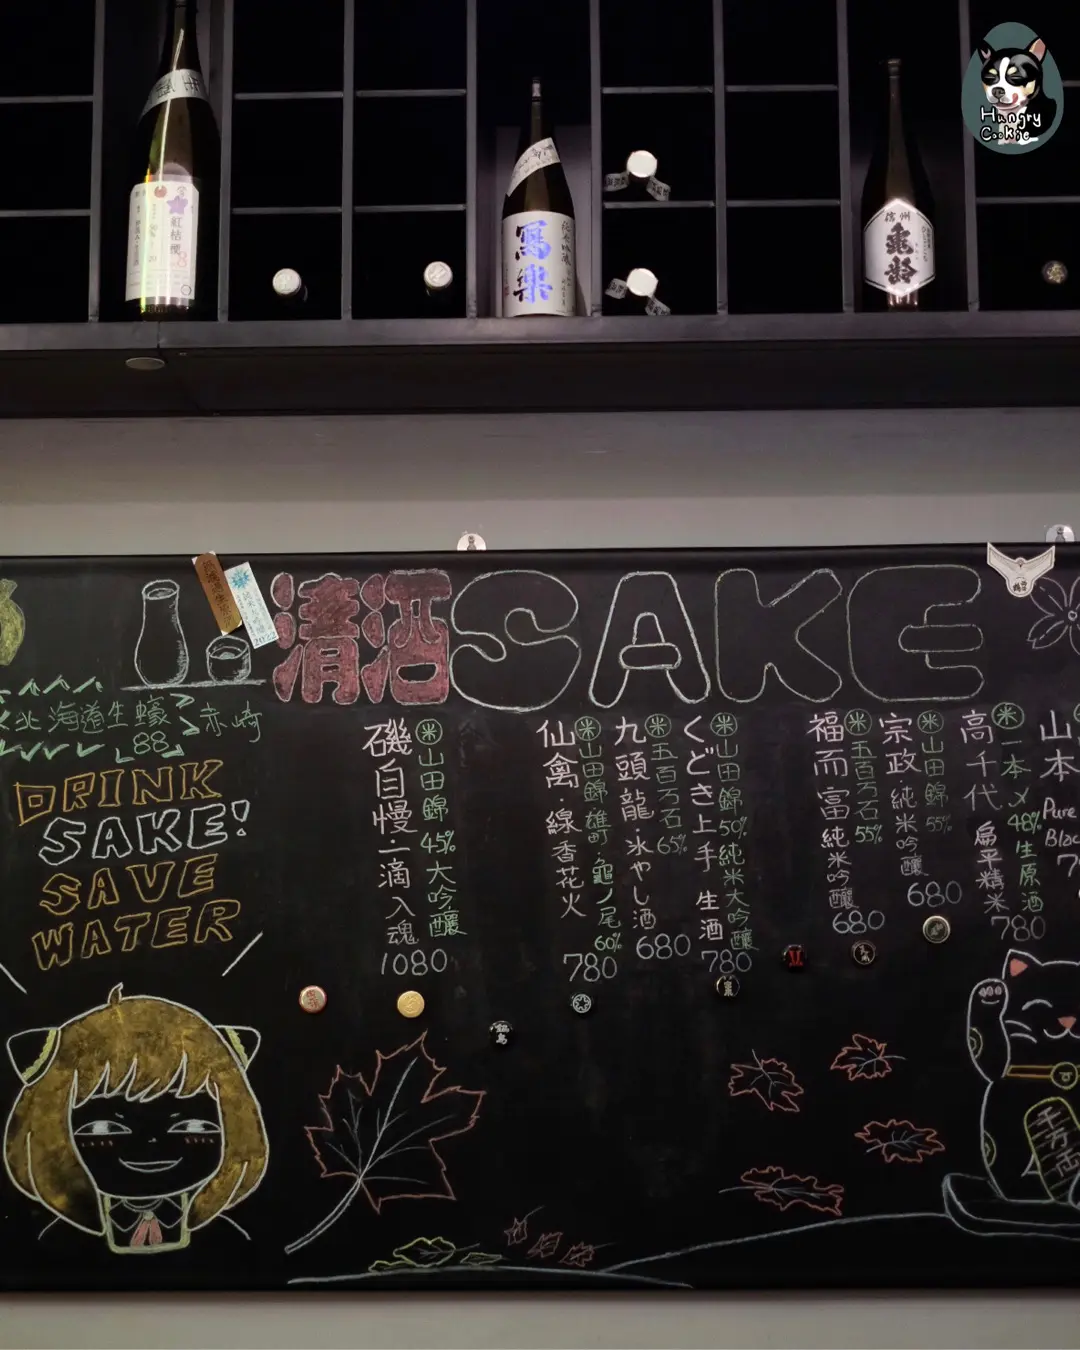 Hungry
Cookie
紅桔梗
寫樂
純米吟醸
信州
亀齢
清酒SAKE
北海道生蠔
88
赤崎
DRINK
SAKE!
SAVE
WATER
磯自慢·一滴入魂
米山田錦 45% 大吟釀
1080
仙禽·線香花火
米山田錦·雄町·龜ノ尾 60%
780
九頭龍·氷やし酒
米五百万石 65%
680
くどき上手 生酒
米山田錦50% 純米大吟釀
780
福而富 純米吟釀
米五百万石 55%
680
宗政 純米吟釀
米山田錦 55%
680
高千代 扁平精米
米一本〆 48% 生原酒
780
山本
Pure
千万両
鍋島